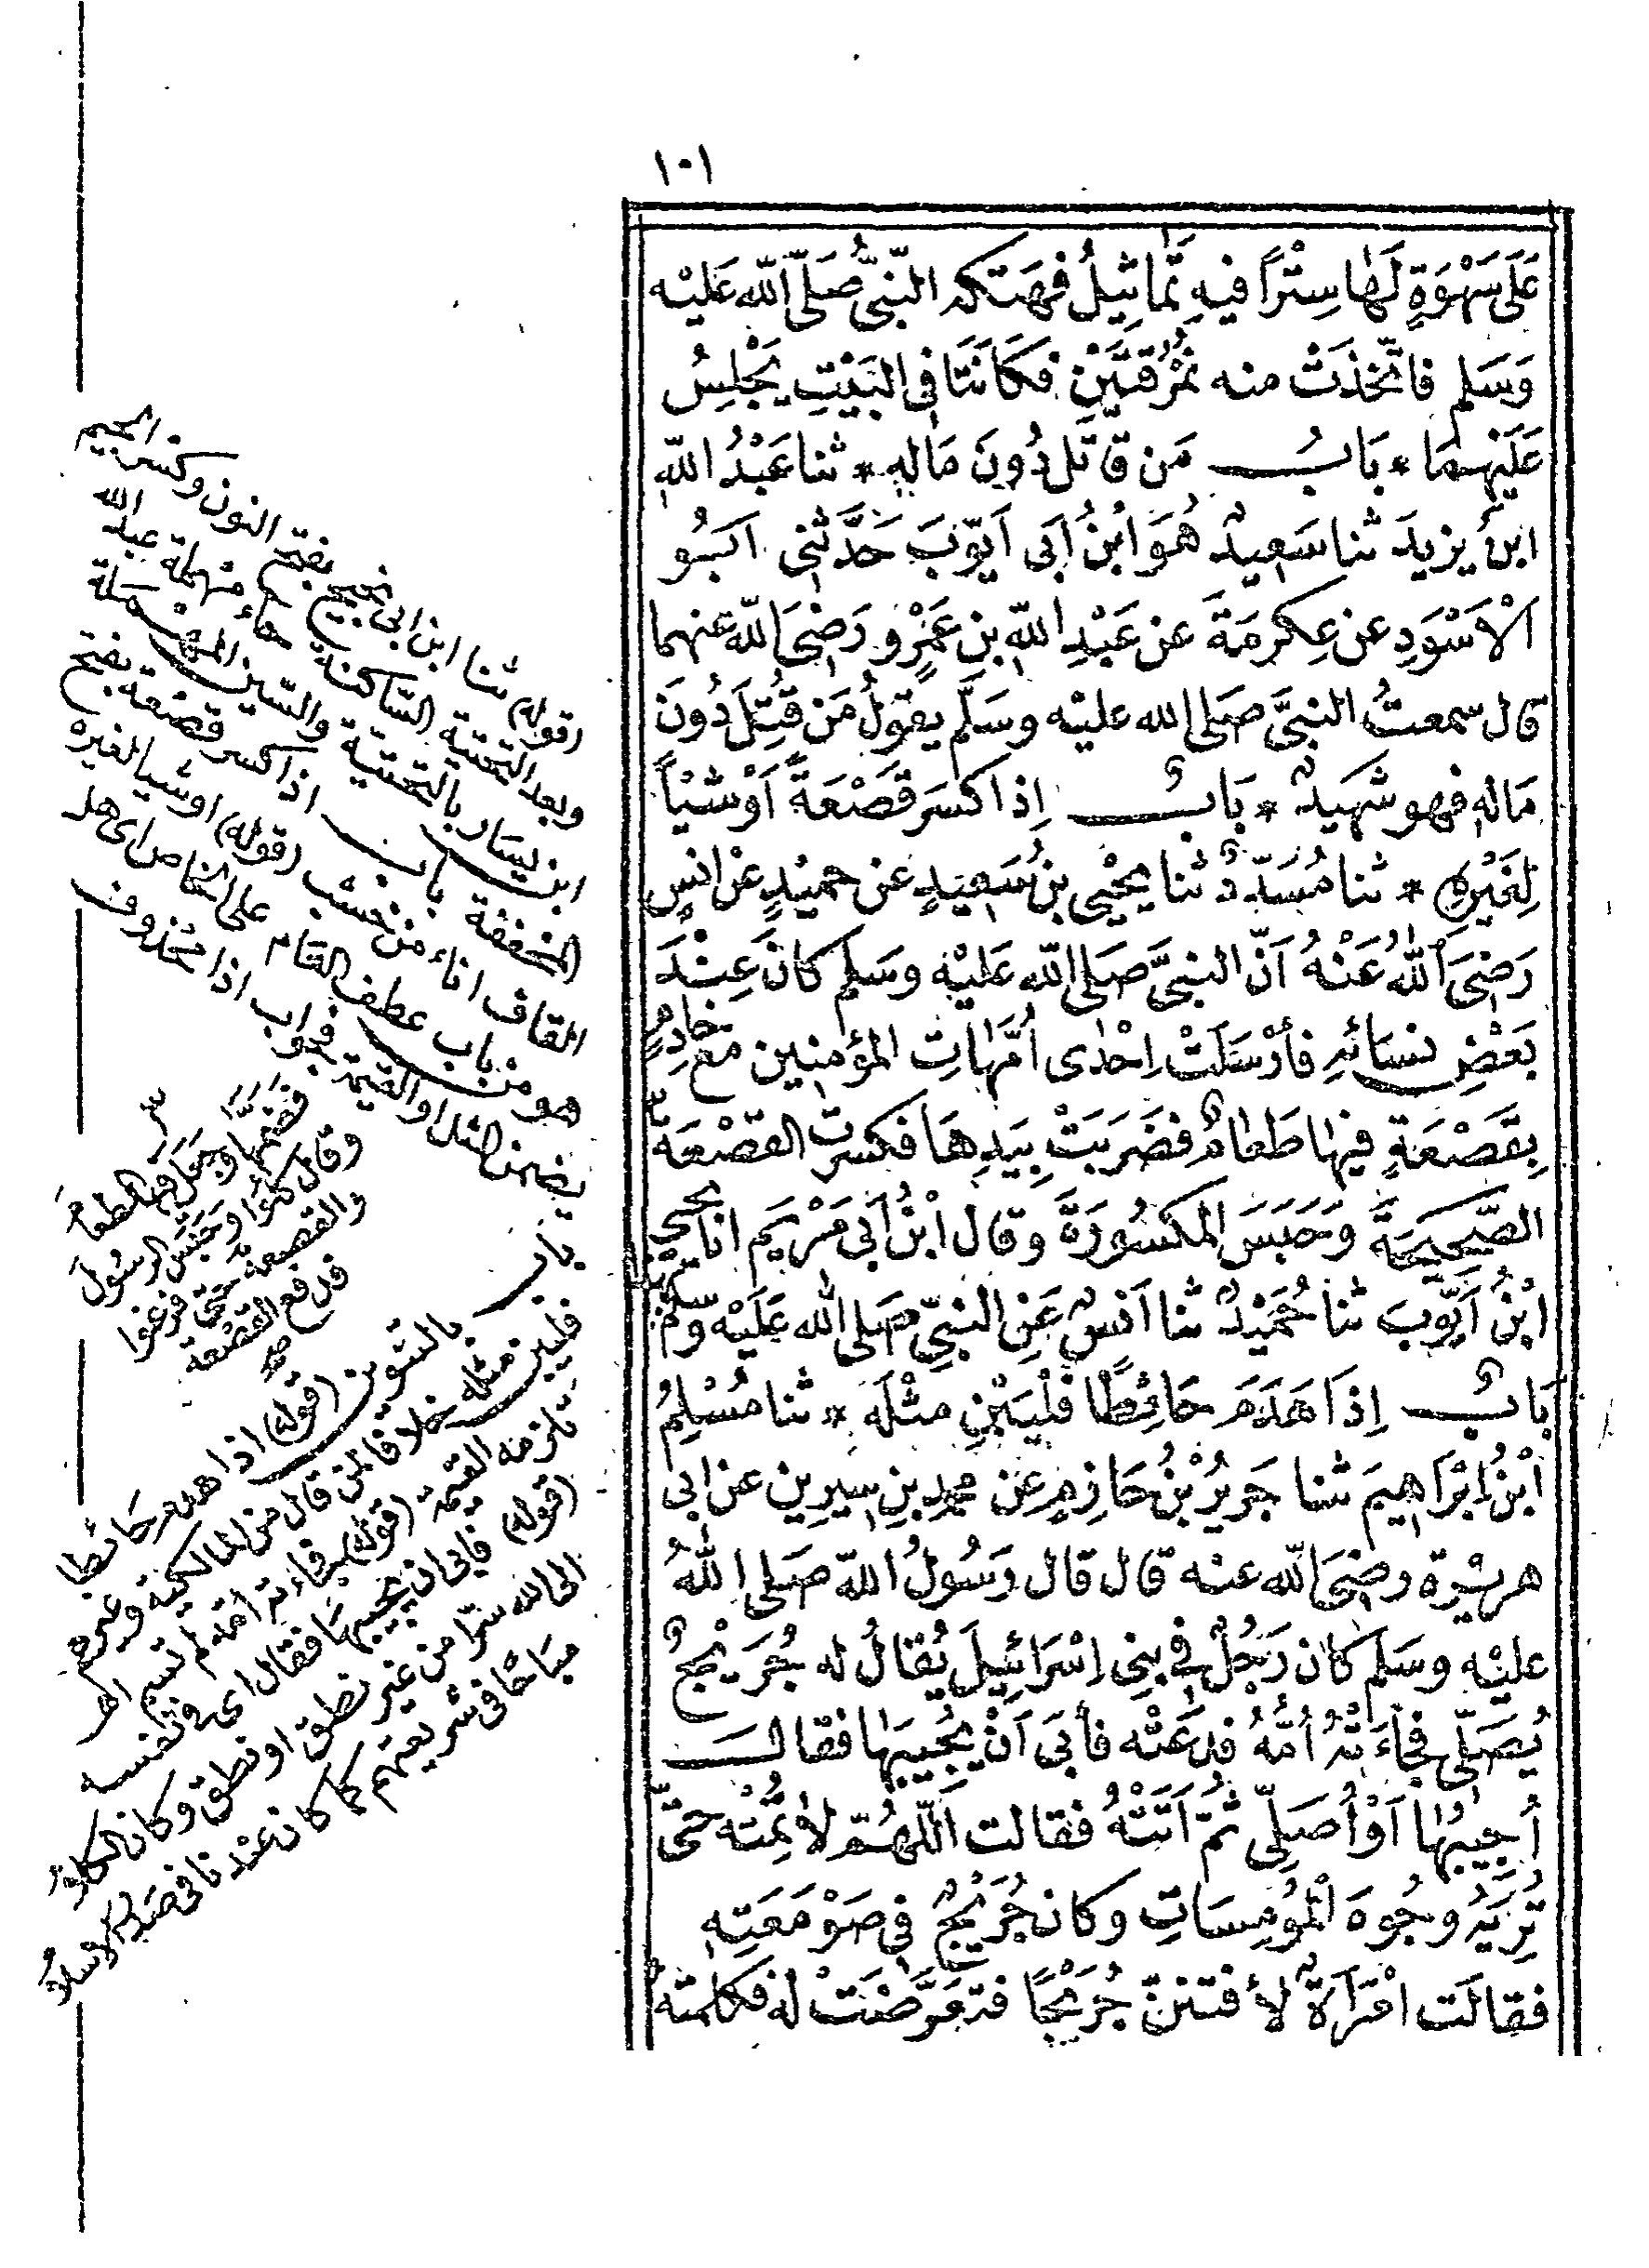 ١٠١
عَلَى سَهْوَةٍ لَهَا سِتْرًا فيهِ تَمَاثِيلُ فهَتكه النّبىُّ صَلّى اللّه عَلَيْه
وَسَلم فاتّخذَتْ منه نُمْرُقَتَيْنِ فكَانَتَا فِى البَيْتِ يَجْلِسُ
عَلَيْهِمَا * بَابُ مَن قاتَل دُونَ مَالِهِ * ثنا عَبْدُ اللّهِ
ابنُ يزيدَ ثنا سَعِيدٌ هُوَ ابْنُ أبَى أيّوُبَ حَدَّثَنِى أبُو
الْأسْوَدِ عن عِكرمَةَ عن عَبْدِ اللّهِ بنِ عَمْرٍو رَضِىَ اللّه عنهما
قال سمعتُ النبىَّ صَلى الله عليْه وسَلَّم يقولُ مَن قُتِلَ دُونَ
مَالِهِ فهو شَهِيدٌ * بَابٌ إِذا كسَرَ قَصْعَةً أَوْ شَيْأً
لِغَيْرِهِ * ثنا مُسَدّدٌ ثنا يحْيى بنُ سَعِيدٍ عن حميْدٍ عن انسٍ
رَضِىَ اللّهُ عَنْهُ أنّ النبىَّ صَلى اللّه عَليْه وسَلم كانَ عِنْدَ
بَعْضِ نسَائهِ فأرْسَلَتْ اِحْدٰى أُمَّهَاتِ المؤمنين مَعَ خَادِمٍ
بِقَصْعَةٍ فيهَا طَعَامٌ فضَرَبَتْ بِيَدِهَا فكسَرتِ القصْعَةَ ٣
الصَّحِيحَةَ وَحَبَسَ المكسُورَةَ وقال ابْنُ أبى مَرْيَم انا يحيى
ابْنُ أيّوُبَ ثنا حُمَيْدٌ ثنا أنَسٌ عَنِ النبىِّ صَلى الله عَلَيْه وسَلم
بَابٌ اِذَا هَدَمَ حَائِطًا فَلْيَبْنِ مثْلَه * ثنا مُسْلِمُ
ابْنُ اِبْرَاهِيمَ ثنا جَرِيرُ بْنُ حَازِمٍ عن محمدِ بنِ سِيرِين عن ابى
هريْرة رضِىَ اللّه عنه قال قال رَسُولُ اللّه صَلى اللّهُ
عليْه وسَلم كان رَجُلٌ فِى بنِى اِسْرَائِيلَ يُقالُ له جُرَيْجٌ
يُصَلّى فجَاءَتْهُ أُمُّهُ فدَعَتْه فأبَى أنْ يُجِيبَهَا فقالَ
أُجِيبُهَا أَوْ أُصَلِّى ثُمّ أتَتْهُ فقالت اَللّهُمّ لاَ تُمِتْه حَتّى
تُرِيَهُ وجُوهَ الْمُومِسَاتِ وكان جُرَيْجٌ فِى صَوْمَعَتِهِ
فقالَت امْرَأةٌ لأفتننّ جُرَيْجًا فتعَرَّضَتْ لهُ فكلمتْهُ
(قوله) ثنا ابن ابى نجيح بفتح النون وكسر الجيم
وبعد التحتية الساكنة حاء مهملة عبد الله
ابن يسار بالتحتية والسين المهملة
المخففة باب اذا كسر قصعة بفتح
القاف اناء من خشب (قوله) او شيا لغيره
هو من باب عطف العام على الخاص اى هل
يضمن المثل او القيمة فجواب اذا محذوف
٣
فضمّها وجَعَل فيها الطعامَ
وقال كلوُا وحَبَسَ الرسُولَ
والقصعة حَتى فرغوا
فدفع القصْعة
صح
باب بالتنوين (قوله) اذا هدم حَائطا
فليبن مثله خلافا لمن قال من المالكية وغيرهم
تلزمه القيمة (قوله) فجاءته امّه لم تسم اهـ
(قوله) فأبى ان يجيبهَا فقال اى فى نفسه
الى الله سرّا من غير نطق او نطق وكان الكلامُ
مبَاحًا فى شريعتهم كما كان عندنا فى صَدر الاسلامُ